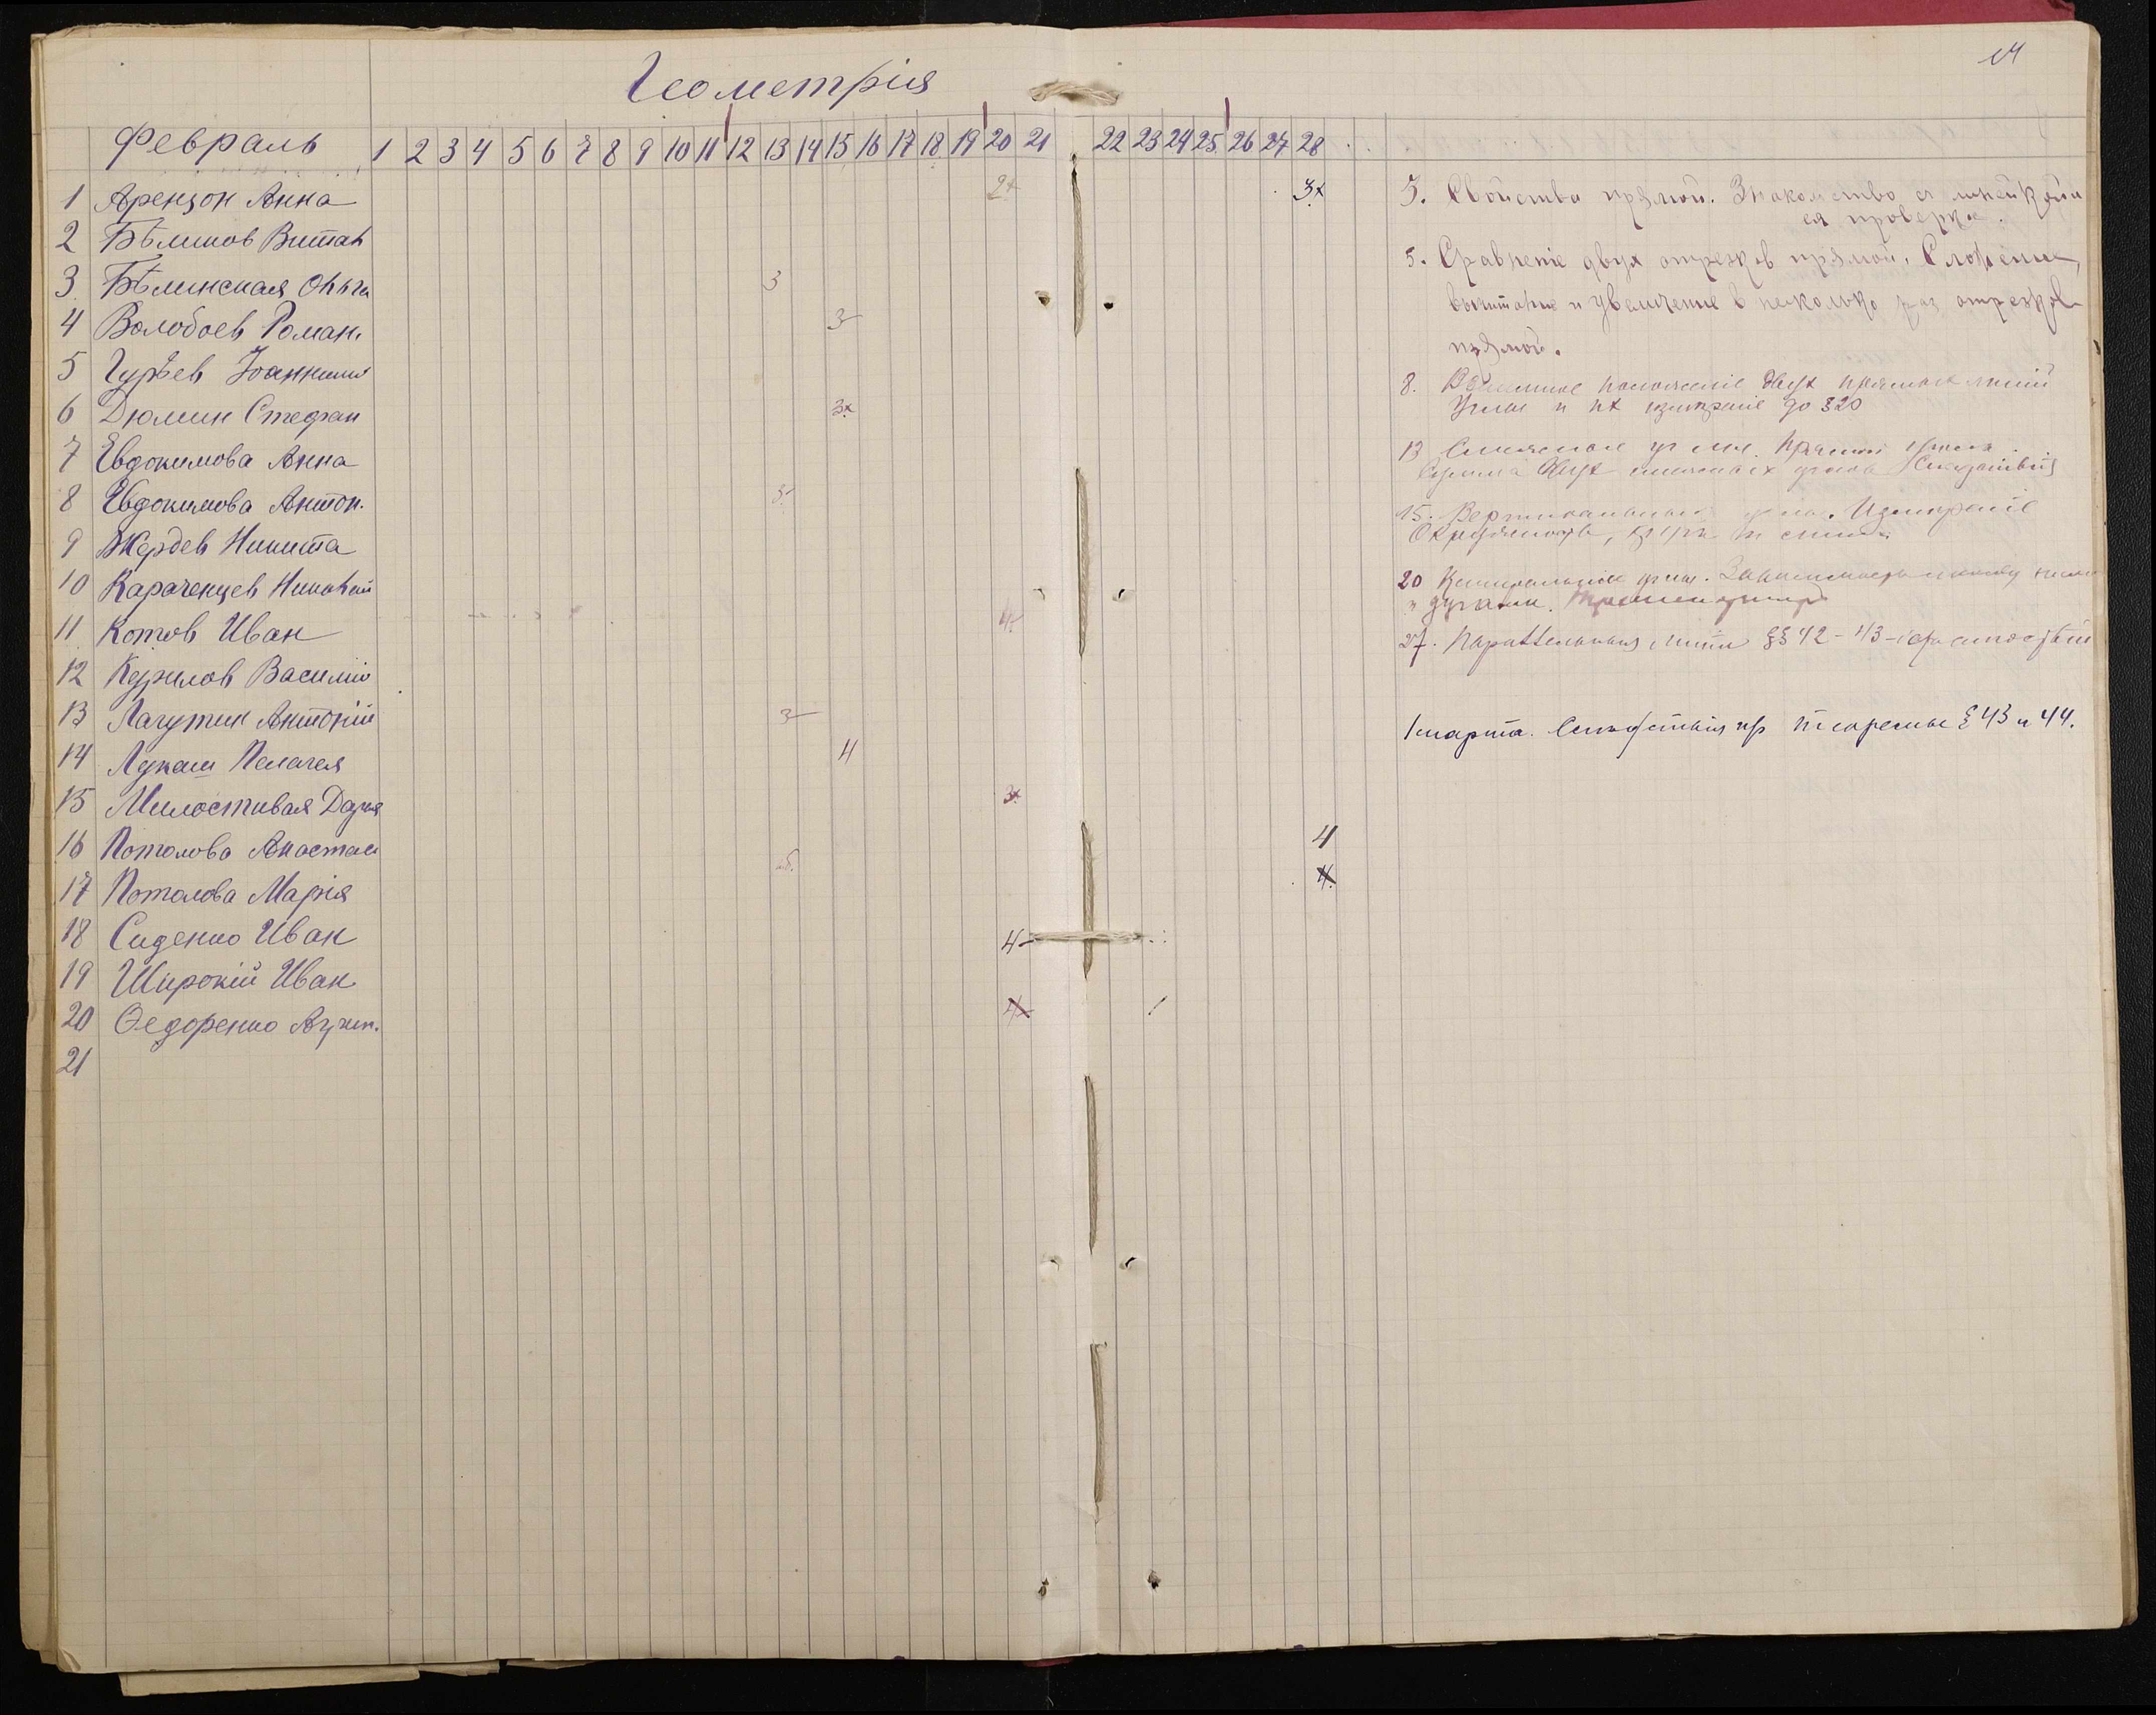 14
Геометрія
Февраль 1 2 3 4 5 6 7 8 9 10 11 12 13 14 15 16 17 18 19 20 21 22 23 24 25 26 27 28
1 Аренцон Анна 2+ 3+
2 Бѣликов
3 Бѣлинская Ольга 3
4 Волобоев Роман. 3-
5 Гурьев
6 Дюмин Стефан 3+
7 Евдокимова Анна
8 Евдокимова Антон. 3-
9 Жердев Никита
10 Караченцев Николай
11 Котов Иван 4-
12 Курилов Василій
13 Лагутин Антоній 3-
14 Лукаш Пелагея 4
15 Милостивая Дарья 3+
16 Потолова Анастаси 4
17 Потолова Марія аб. 4
18 Сиденко Иван 4-
19 Широкій Иван
20 Ѳедоренко 4
21
3. Свойства прямой. Знакомство с линейкой и
ея проверка.
5. Сравненіе двух отрезков прямой. Сложение,
вычитание и увеличение в несколько раз отрезков
прямой.
8. Взаимное положеніе двух прямых линій
Углы и их измѣреніе до §20
13 Смежные углы. Прямой
Сумма двух смежных углов
15. Вертикальные углы. Измѣреніе
20 Центральные углы. Зависимость между
и дугами. Транспортир
27. Параллельныя линіи §§ 42-43
1 марта. Слѣдствія из теоремы § 43 и 44.